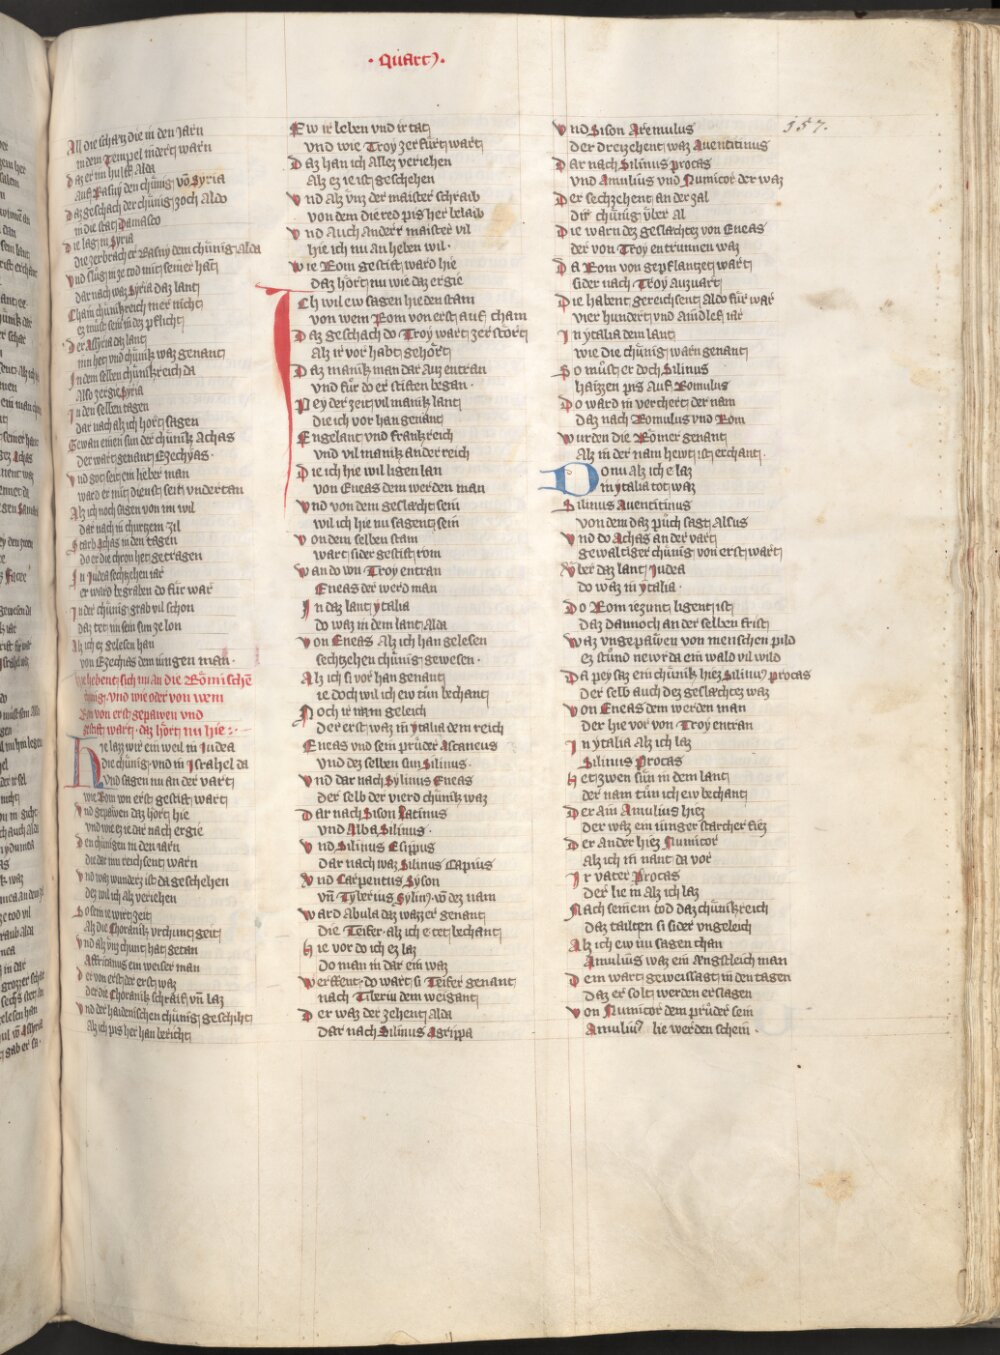 · Quart᾽ ·
357.
All die schätz die in den Jarn
in dem Tempel inder᷑t warn
Daz er im hulff Alda
auf Rasyn den chünig von Syria
Daz geschach der chünig zoch Aldo
in die stat Damasco
Die lag in Syria
die zerbrach er Rasyn dem chünig Alda
Vnd slug in ze tod mit seiner hant
dar nach waz Syria daz lant
Cham chünikreich mer nicht
ez müst sein in dez pflicht
Der Assyria daz lant
inn het vnd chünik waz genant
In dem selben chünikreich da
Also zergie Syria
In den selben tagen
dar nach alz ich hort sagen
Gewan einen sun der chünik Achas
der wart genant Ezechyas ·
Vnd got seit ein lieber man
ward er mit dienst seit vndertan
Alz ich noch sagen von im wil
dar nach in churczem zil
Starb Achas in den tagen
do er die chron het getragen
In Judea sechzehen iar
er ward begraben do für war
In der chünig grab vil schon
daz tet im sein sun ze lon
Alz ich ez gelesen han
von Ezechias dem iungen man ·
Hie hebent sich nu an die Römischen
chünig · vnd wie oder von wem
Rom von erst gepawen vnd
gestift wart · daz hört nu hie :·
Hie laz wir ein weil in Judea
die chünig vnd in Israhel da
Vnd sagen nu an der vart
wie Rom von erst gestift wart
Vnd gepawen daz hört hie
vnd wie ez ie dar nach ergie
Den chünigen in den iarn
die dar inn reichsent warn
Vnd waz wunderz ist da geschehen
dez wil ich alz veriehen
So sein ie wirt zeit
Alz die Choranik vrchunt geit
Vnd alz vnz chunt hat getan
Affricanus ein weiser man
Der von erst der erst waz
der die Choranik schraib vn̄ laz
Vnd der haidenischen chünig geschiht
Alz ich pis her han bericht
Ew ir leben vnd ir tat
vnd wie Troy zerfürt wart
Daz han ich Allez veriehen
Alz ez ie ist geschehen
Vnd Alz vnz der maister schraib
von dem die red pis her belaib
Vnd Auch Anderr maister vil
hie ich nu an heben wil ·
Wie Rom gestift ward hie
daz hört nu wie daz ergie
Ich wil ew sagen hie den stam
von wem Rom von erst auf cham
Daz geschach do Troy wart zerstort
Alz ir vor habt gehört
Daz manik man dar Auz entran
vnd für do er stiften began ·
Pey der zeit vil manik lant
die ich vor han genant
Engelant vnd frankreich
vnd vil manik ander reich
Die ich hie wil ligen lan
von Eneas dem werden man
Vnd von dem geslaecht sein
wil ich hie nu sagent sein
Von dem selben stam
wart sider gestift rom
Wan do von Troy entran
Eneas der werd man
In daz lant ytalia
do waz in dem lant Alda
Von Eneas Alz ich han gelesen
sechzehen chünig gewesen ·
Alz ich si vor han genant
ie doch wil ich ew tün bechant
Noch ir nam geleich
Der erst waz in ytalia dem reich
Eneas vnd sein prüder Ascaneus
vnd dez selben sun Silinus ·
Vnd dar nach Sylinus Eneas
der selb der vierd chünik waz
Dar nach Sison Latinus
vnd Alba Silinus ·
Vnd Silinus Esippus
dar nach waz Silinus Capius
Vnd Carpentus Syson
vn̄ Tyberius Sylin᾽ · vō dez nam
Ward Abula daz wazzer genant
die Teifer · alz ich e tet bechant
Hie vor do ich ez laz
Do man in dar ein waz
Werffent · do wart si Teifer genant
nach Tiberiu dem weigant
Der waz der zehent Alda
Dar nach Silinus Agrippa
Vnd Sison Aremulus
der dreizehent waz Auentitinus
Dar nach Silinus procas
vnd Amulius vnd Numicor der waz
Der sechzehent an der zal
dir chünig vber al
Die warn dez geslachtez von Eneas
der von Troy entrunnen waz
Da Rom von gepflanczet wart
sider nach Troy auzuart
Die habent gereichsent Aldo für war
vier hundert vnd Aindlef iar
In ytalia dem lant
wie die chünig warn genant
So müst er doch Silinus
haizzen pis auf Romulus
Do ward in verchert der nam
daz nach Romulus vnd Rom
Wurden die Römer genant
Alz in der nam hewt ist erchant ·
Do nu alz ich e laz
in ytalia tot waz
Silinus Auentitinus
von dem daz püch sagt Alsus
Vnd do Achas an der vart
gewaltiger chünig von erst wart
Vber daz lant Judea
do waz in ytalia ·
Do Rom iezunt ligent ist
daz dannoch an der selben frist
Waz vngepawen von menschen pild
ez stünd newr da ein wald vil wild
Da pey saz ein chünik hiez Silinus procas
der selb auch dez geslachtez waz
Von Eneas dem werden man
der hie vor von Troy entran
In ytalia Alz ich laz
Silinus Procas
Het zwen sün in dem lant
der nam tün ich ew bechant
Der ain Amulius hiez
Der waz ein iunger starcher fiez
Der ander hiez Numicor
Alz ich in nant da vor
Ir vater Procas
der lie in Alz ich laz
Nach seinem tod daz chünikreich
daz tailten si sider vngeleich
Alz ich ew nu sagen chan
Amulius waz ein Angstleich man
Dem wart geweissagt in den tagen
daz er solt werden erslagen
Von Numicor dem prüder sein
Amulius lie werden schein ·